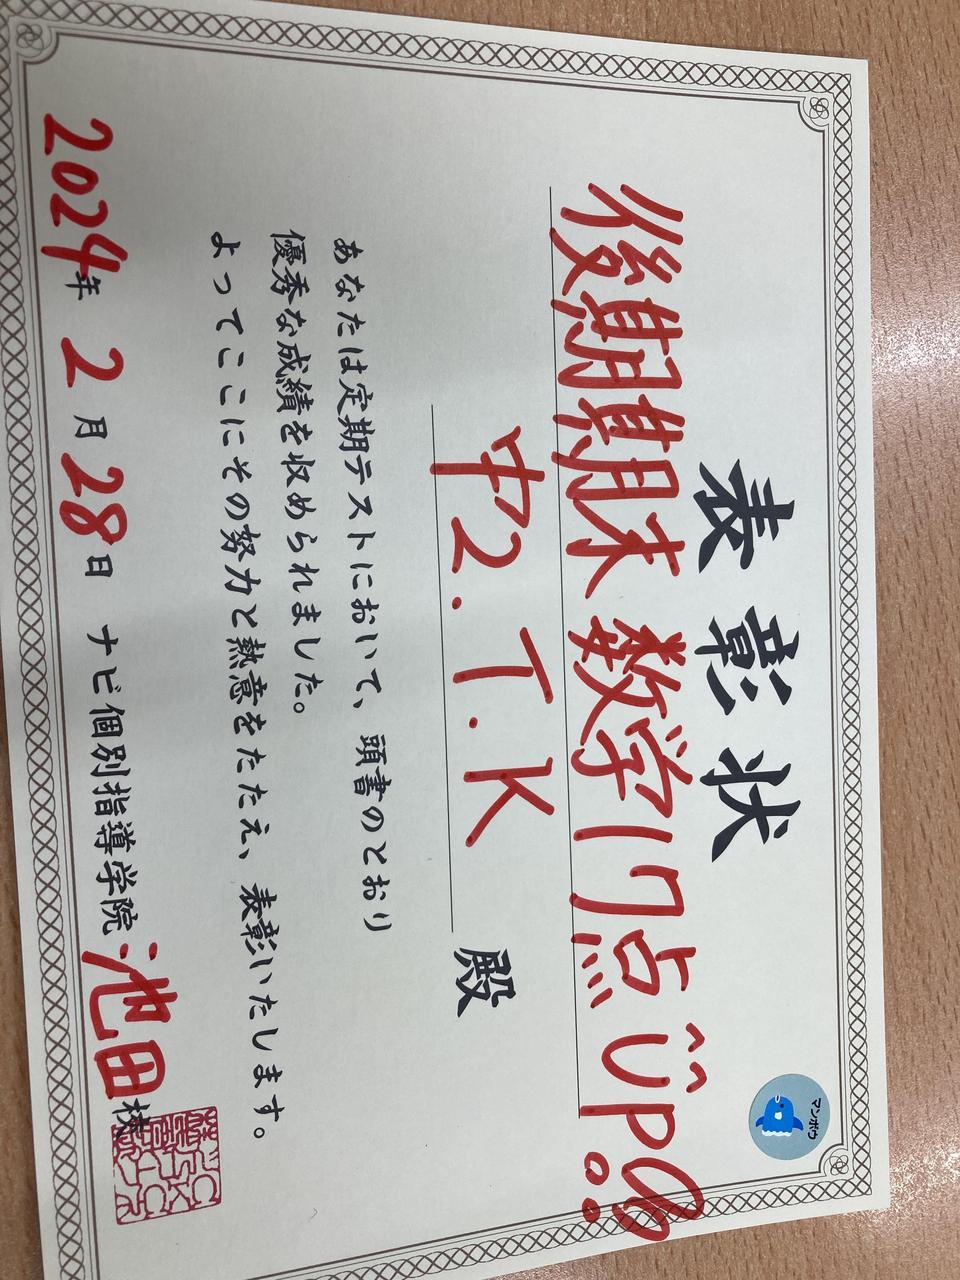 表彰状
マンボウ
後期期末 数学17点UP!!
中2. T.K 殿
あなたは定期テストにおいて、頭書のとおり
優秀な成績を収められました。
よってここにその努力と熱意をたたえ、表彰いたします。
2024年 2月 28日 ナビ個別指導学院 池田校